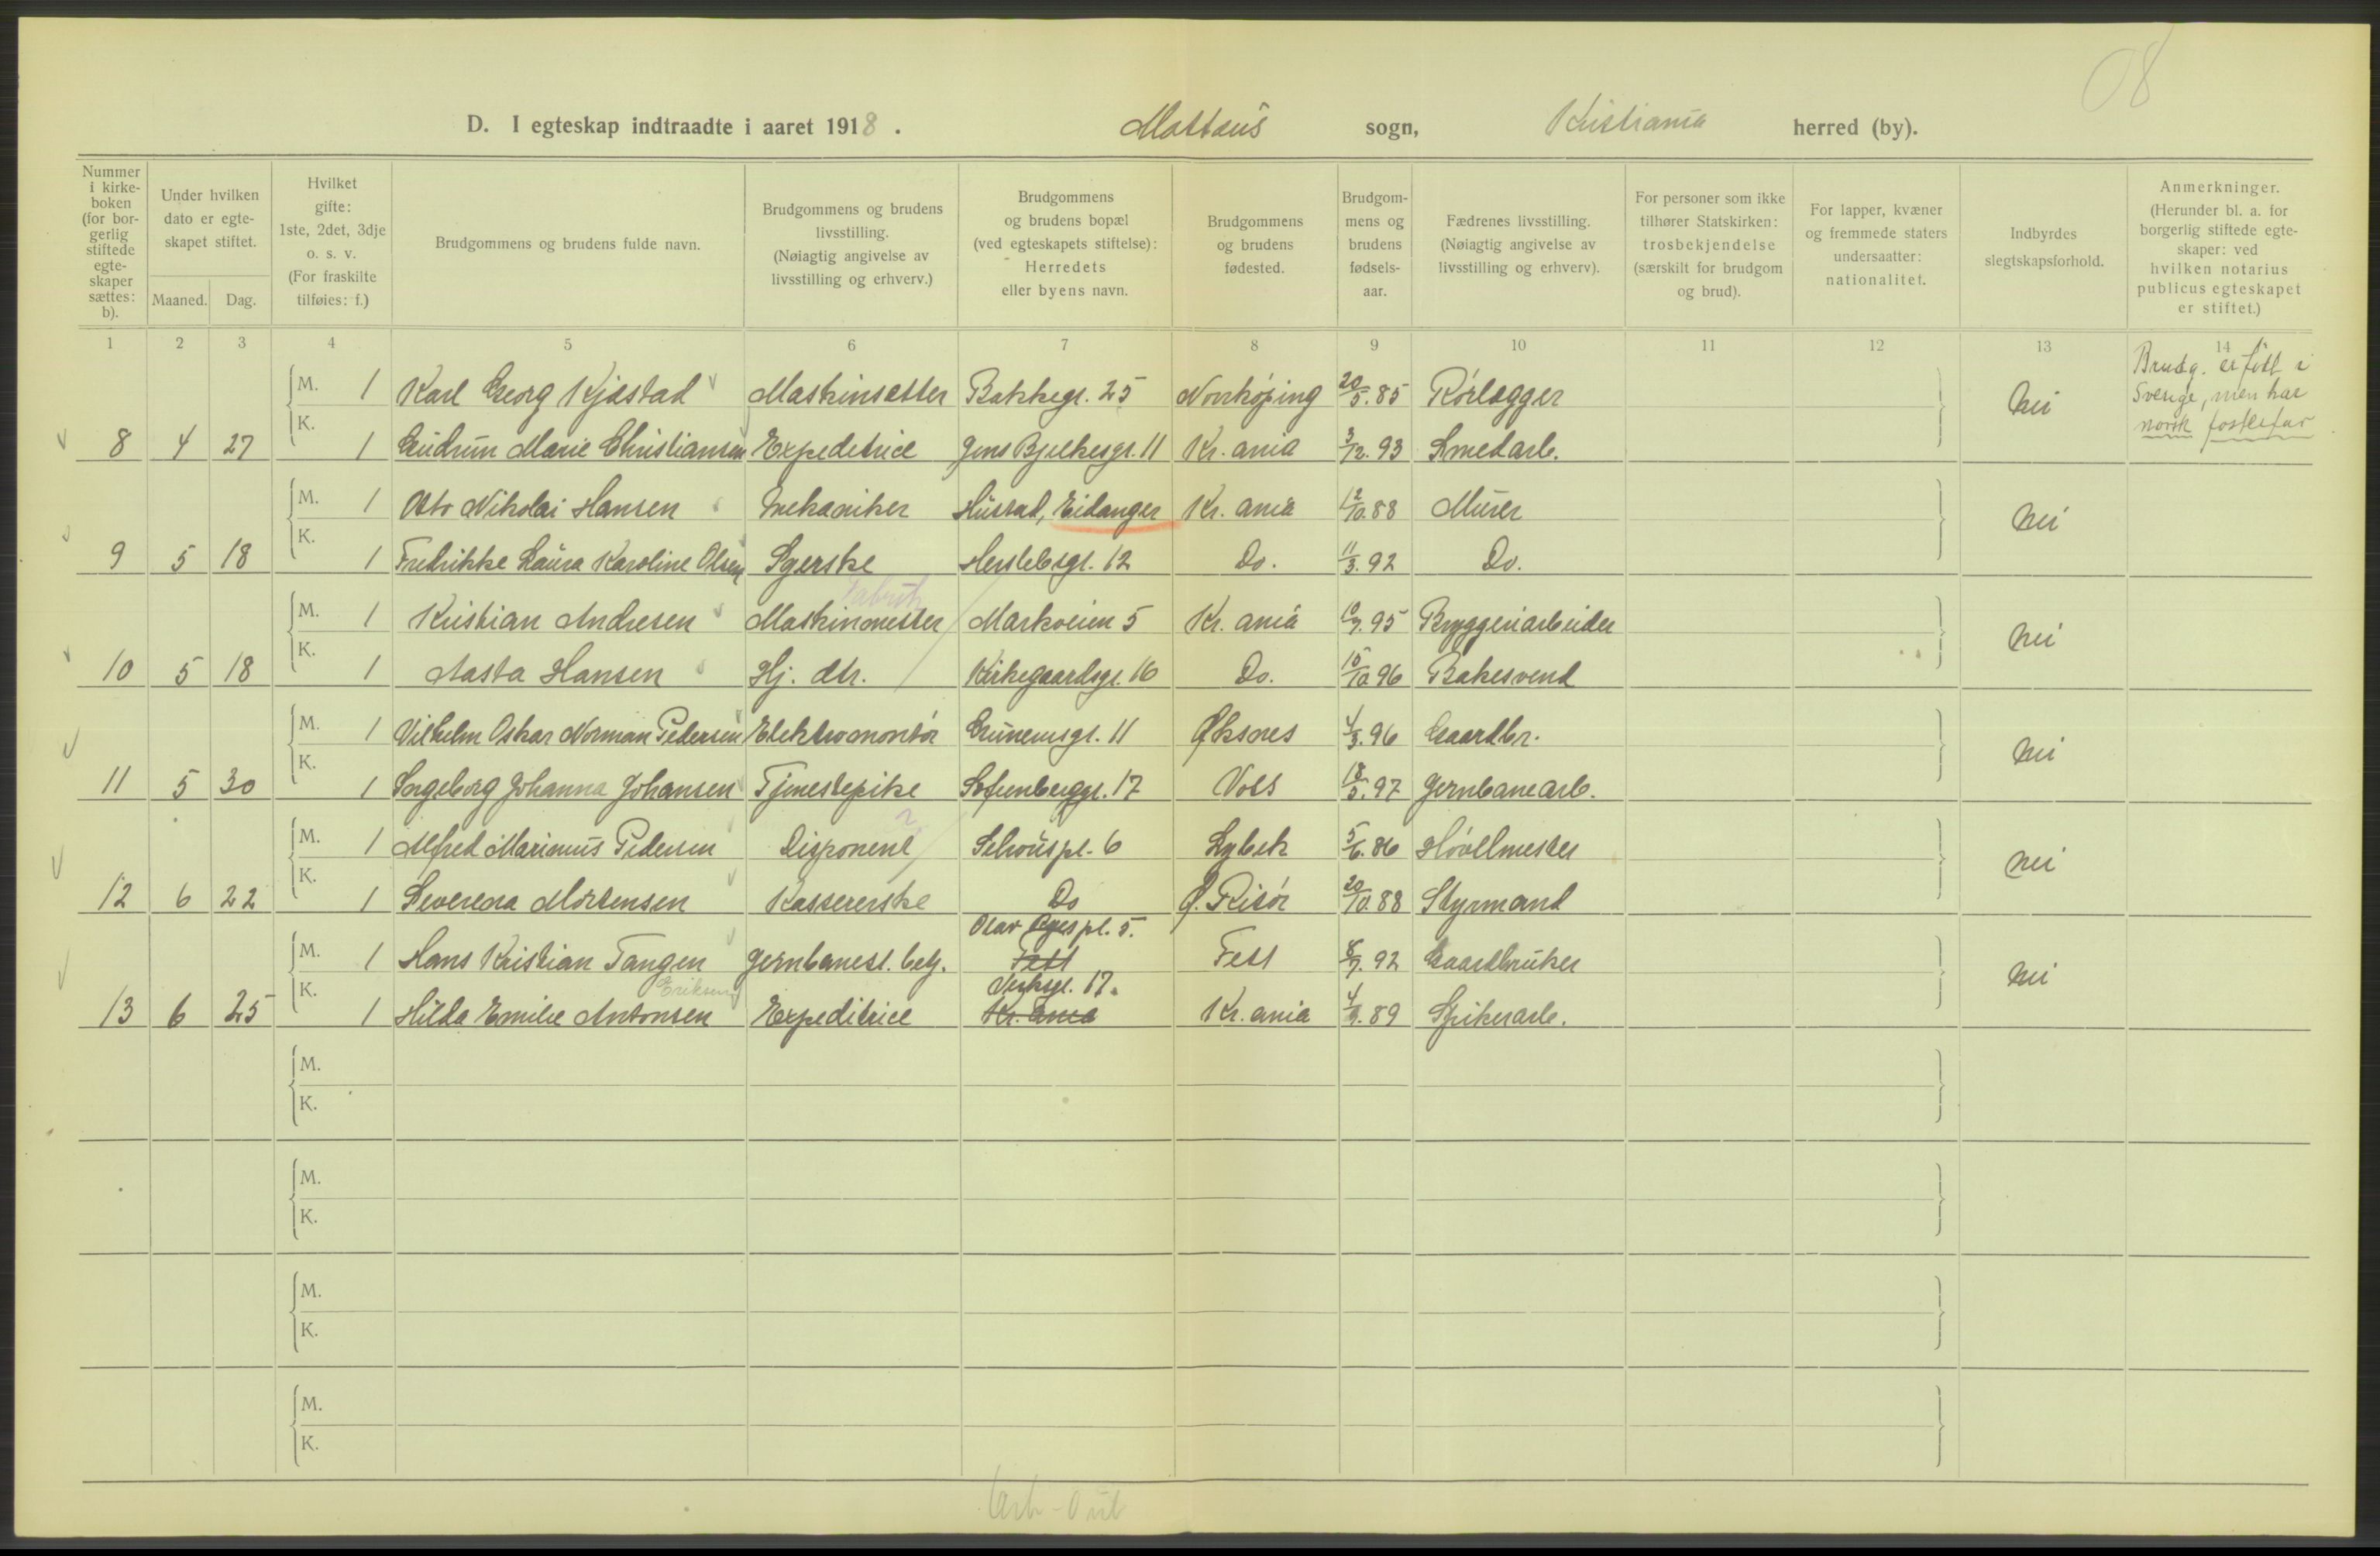 08
D. I egteskap indtraadte i aaret 1918. Mattæus sogn, Kristiania herred (by).
Nummer i kirkeboken (for borgerlig stiftede egteskaper sættes: b).
Under hvilken dato er egteskapet stiftet.
Maaned. Dag.
Hvilket gifte: 1ste, 2det, 3dje o. s. v. (For fraskilte tilføies: f.)
Brudgommens og brudens fulde navn.
Brudgommens og brudens livsstilling. (Nøiagtig angivelse av livsstilling og erhverv.)
Brudgommens og brudens bopæl (ved egteskapets stiftelse): Herredets eller byens navn.
Brudgommens og brudens fødested.
Brudgommens og brudens fødselsaar.
Fædrenes livsstilling. (Nøiagtig angivelse av livsstilling og erhverv).
For personer som ikke tilhører Statskirken: trosbekjendelse (særskilt for brudgom og brud).
For lapper, kvæner og fremmede staters undersaatter: nationalitet.
Indbyrdes slegtskapsforhold.
Anmerkninger. (Herunder bl. a. for borgerlig stiftede egteskaper: ved hvilken notarius publicus egteskapet er stiftet.)
1 2 3 4 5 6 7 8 9 10 11 12 13 14
M. 1 Karl Georg Kjæstad Maskinsetter Bakkegt. 25 Norrköping 20/5.85 Rørlægger nei Brudg. er født i Sverige, men har norsk fosterfar
8 4 27 K. 1 Gudrun Marie Christiansen Expeditrice Jens Bjelkesgt. 11 Kr.ania 3/12.93 Smedarb.
M. 1 Otto Nikolai Hansen Mekaniker Hustad, Eidanger Kr.ania 12/10.88 Murer nei
9 5 18 K. 1 Fredrikke Laura Karoline Olsen Syerske Herslebsgt. 12 Do. 11/3.92 Do.
Fabrik
M. 1 Kristian Andresen Maskinmester Markveien 5 Kr.ania 10/7.95 Bryggeriarbeider nei
10 5 18 K. 1 Aasta Hansen Hj. dtr. Kirkegaardsgt. 16 Do. 15/10.96 Bakersvend
M. 1 Vilhelm Oskar Norman Pedersen Elektromontør Grünersgt. 11 Øksnes 4/3.96 Gaardbr. nei
11 5 30 K. 1 Ingeborg Johanna Johansen Tjenestepike Sofienberggt. 17 Voss 18/5.97 Jernbanearb.
M. 1 Alfred Marinius Pedersen Disponent Schouspl. 6 Lybek 5/6.86 Høvelmester nei
12 6 22 K. 1 Severena Mortensen Kassererske Do Ø. Risør 20/10.88 Styrmand
Olav Ryes pl. 5.
M. 1 Hans Kristian Tangen Jernbanest. betj. Fett Fett 8/7.92 Gaardbruker nei
Eriksen Verksgt. 17.
13 6 25 K. 1 Hilda Emilie Antonsen Expeditrice Kr.ania Kr.ania 4/9.89 Spikerarb.
M.
K.
M.
K.
M.
K.
M.
K.